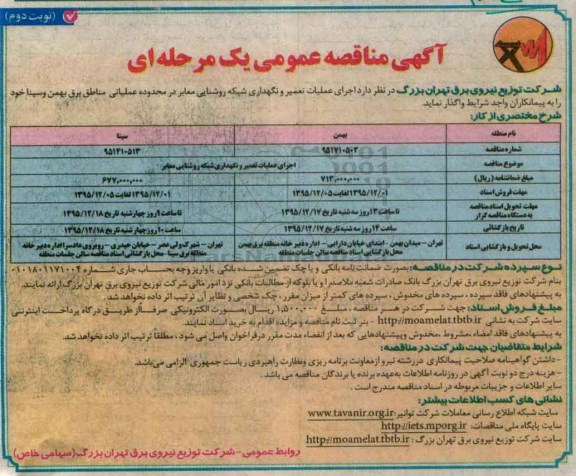 (نوبت دوم)
آگهی مناقصه عمومی یک مرحله ای
شرکت توزیع نیروی برق تهران بزرگ در نظر دارد اجرای عملیات تعمیر و نگهداری شبکه روشنایی معابر در محدوده عملیاتی مناطق برق بهمن و سینا خود
را به پیمانکاران واجد شرایط واگذار نماید.
شرح مختصری از کار:
نام منطقه بهمن سینا
شماره مناقصه ۹۵۱۷۱۰۵۰۲ ۹۵۱۳۱۰۵۱۳
موضوع مناقصه اجرای عملیات تعمیر و نگهداری شبکه روشنایی معابر
مبلغ ضمانتنامه (ریال) ۷۱۳,۰۰۰,۰۰۰ ۶۷۷,۰۰۰,۰۰۰
مهلت فروش اسناد ۱۳۹۵/۱۲/۰۱ لغایت ۱۳۹۵/۱۲/۰۵ ۱۳۹۵/۱۲/۰۱ لغایت ۱۳۹۵/۱۲/۰۵
مهلت تحویل اسناد مناقصه به دستگاه مناقصه گزار تا ساعت ۱۳ روز سه شنبه تاریخ ۱۳۹۵/۱۲/۱۷ تا ساعت ۹ روز چهارشنبه تاریخ ۱۳۹۵/۱۲/۱۸
تاریخ بازگشائی ساعت ۱۴ روز سه شنبه تاریخ ۱۳۹۵/۱۲/۱۷ ساعت ۱۰ روز چهارشنبه تاریخ ۱۳۹۵/۱۲/۱۸
محل تحویل و بازگشایی اسناد تهران - میدان بهمن - ابتدای خیابان دارابی - اداره دبیر خانه منطقه برق بهمن تهران - شهرک ولی عصر - خیابان حیدری - روبروی دادسرا اداره دبیر خانه
محل بازگشایی اسناد مناقصه سالن جلسات منطقه منطقه برق سینا - محل بازگشایی اسناد مناقصه سالن جلسات منطقه
نوع سپرده شرکت در مناقصه: بصورت ضمانت نامه بانکی و یا چک تضمین شده بانکی یا واریز وجه بحساب جاری شماره ۰۱۰۱۸۰۱۱۷۱۰۰۴
بنام شرکت توزیع نیروی برق تهران بزرگ بانک صادرات شعبه ملاصدرا و یا بلوکه از مطالبات بانکی نزد امور مالی شرکت توزیع نیروی برق تهران بزرگ ارائه نمایند.
به پیشنهادهای فاقد سپرده، سپرده های مخدوش، سپرده های کمتر از میزان مقرر، چک شخصی و نظایر آن ترتیب اثر داده نخواهد شد.
مبلغ فروش اسناد: جهت شرکت در هر مناقصه، مبلغ ۱,۵۰۰,۰۰۰ ریال بصورت الکترونیکی صرفاً از طریق درگاه پرداخت اینترنتی
سایت شرکت به نشانی http://moamelat.tbtb.ir - بنر ثبت نام مناقصه و مزایده اقدام به خرید اسناد نمایند.
به پیشنهادهای فاقد امضاء، مشروط، مخدوش و پیشنهادهایی که بعد از انقضاء مدت مقرر در فراخوان واصل می شود، مطلقاً ترتیب اثر داده نخواهد شد.
شرایط متقاضیان جهت شرکت در مناقصه:
- داشتن گواهینامه صلاحیت پیمانکاری در رشته نیرو از معاونت برنامه ریزی و نظارت راهبردی ریاست جمهوری الزامی می باشد.
- هزینه درج دو نوبت آگهی در روزنامه اطلاعات به عهده برنده یا برندگان مناقصه می باشد.
سایر اطلاعات و جزییات مربوطه در اسناد مناقصه مندرج است.
نشانی های کسب اطلاعات بیشتر:
سایت شبکه اطلاع رسانی معاملات شرکت توانیر www.tavanir.org.ir
سایت پایگاه ملی مناقصات: http://iets.mporg.ir
سایت شرکت توزیع نیروی برق تهران بزرگ: http://moamelat.tbtb.ir
روابط عمومی - شرکت توزیع نیروی برق تهران بزرگ (سهامی خاص)